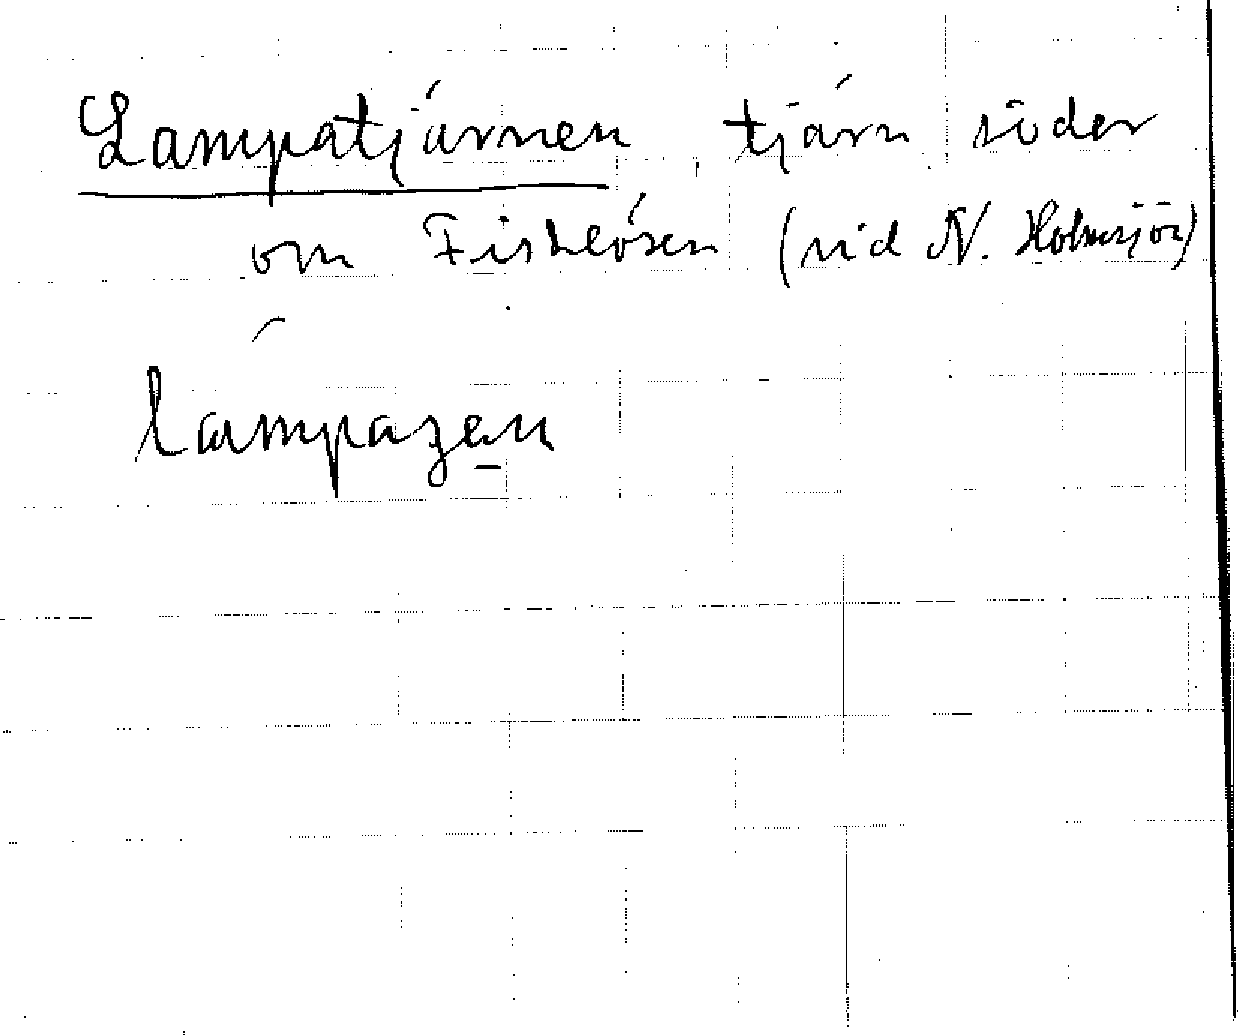 Lampatjärnen, tjärn söder
om Fisklösen (vid N. Holmsjön)
lampaʒen